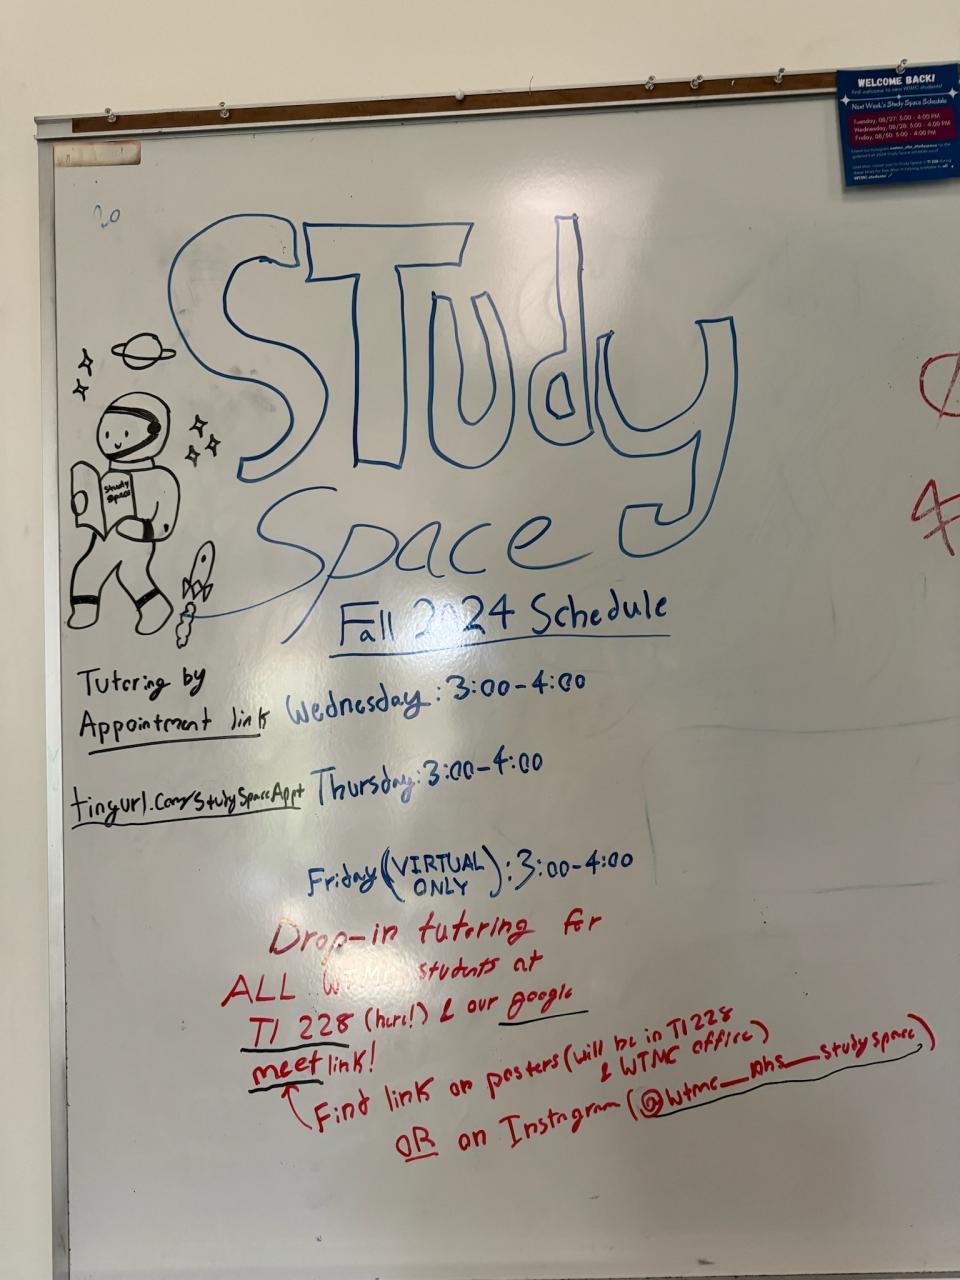 WELCOME BACK!
Next Week's Study Space Schedule
Tuesday, 08/27: 3:00 - 4:00 PM
Wednesday, 08/28: 3:00 - 4:00 PM
Friday, 08/30: 3:00 - 4:00 PM
20
STudy
Space
Study
Space
Fall 2024 Schedule
Tutoring by
Appointment link
tinyurl.com/StudySpaceAppt
Wednesday: 3:00-4:00
Thursday: 3:00-4:00
Friday (VIRTUAL ONLY): 3:00-4:00
Drop-in tutoring for
ALL WTMC students at
TI 228 (here!) & our google
meet link!
Find link on posters (will be in TI 228
& WTMC office)
OR on Instagram (@wtmc_nhs_studyspace)